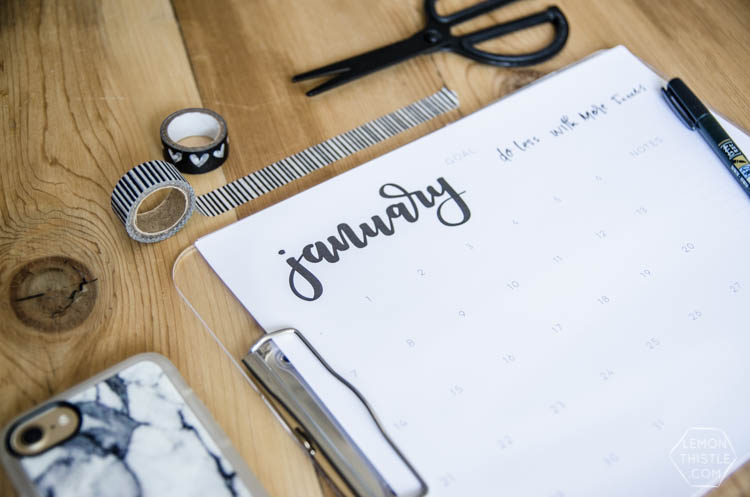 GOAL
do less with more focus
NOTES
january
1 2 3 4 5 6
7 8 9 10 11 12 13
14 15 16 17 18 19 20
21 22 23 24 25 26 27
30 31
LEMON
THISTLE
.COM